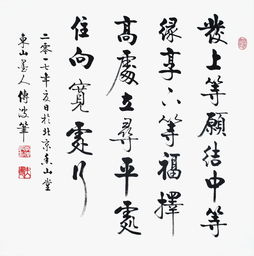 发上等愿结中等
缘享下等福择
高处立寻平处
住向宽处行
二零一七年夏日于北京东山堂
东山